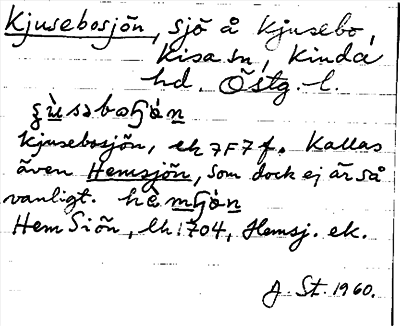 Kjusebosjön, sjö å Kjusebo,
Kisa sn, Kinda
hd. Östg. l.
Kjusebosjön, ek 7F7f. Kallas
även Hemsjön, som dock ej är så
vanligt.
Hem Siön, lk 1704, Hemsj. ek.
J. St. 1960.